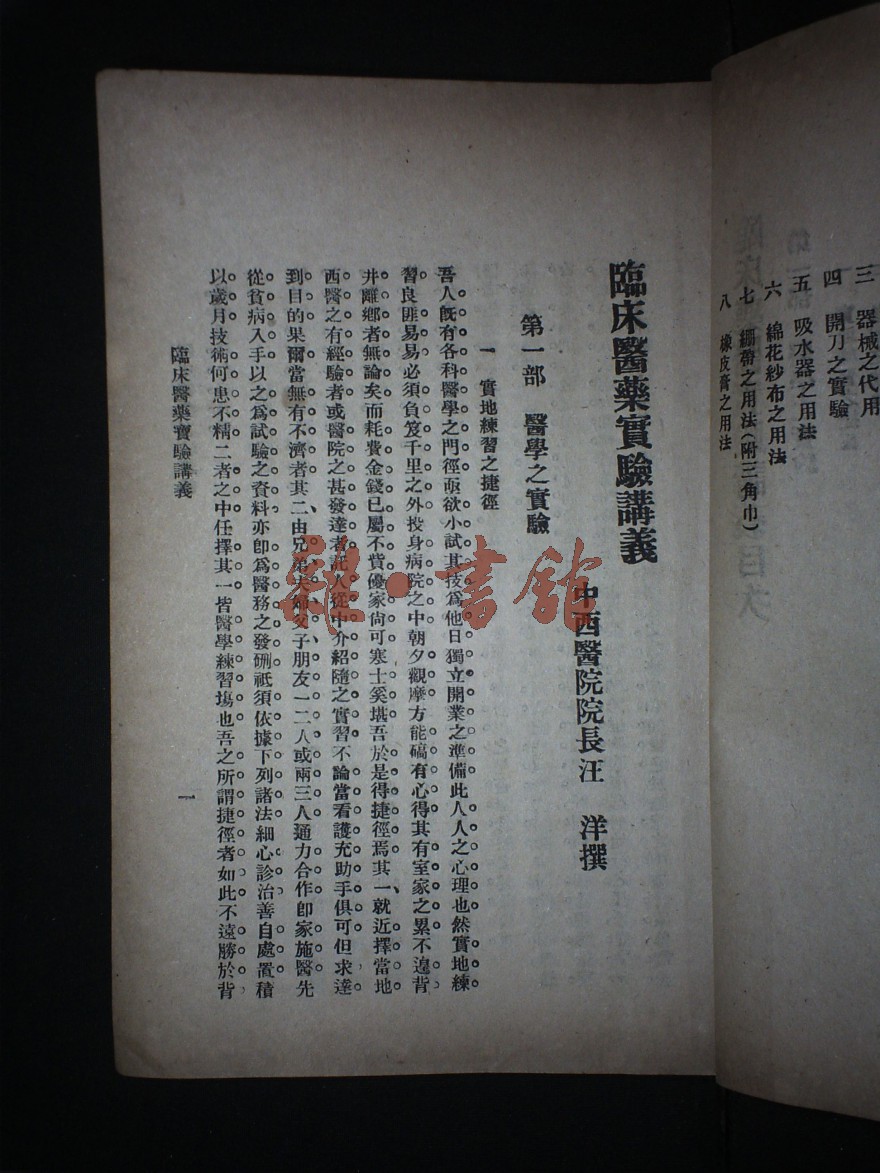 三　器械之代用
四　開刀之實驗
五　吸水器之用法
六　綿花紗布之用法
七　綳帶之用法(附三角巾)
八　橡皮膏之用法
臨床醫藥實驗講義
中西醫院院長汪　洋撰
第一部　醫學之實驗
一　實地練習之捷徑
吾人旣有各科醫學之門徑亟欲小試其技爲他日獨立開業之準備此人人之心理也然實地練
習良匪易易必須負笈千里之外投身病院之中朝夕觀摩方能確有心得其有室家之累不遑背
井離鄕者無論矣而耗費金錢已屬不貲優家尙可寒士奚堪吾於是得捷徑焉其一就近擇當地
西醫之有經驗者或醫院之甚發達者託人從中介紹隨之實習不論當看護充助手俱可但求達
到目的果爾當無有不濟者其二由兄弟夫婦父子朋友一二人或兩三人通力合作卽家施醫先
從貧病入手以之爲試驗之資料亦卽爲醫務之發硎祗須依據下列諸法細心診治善自處置積
以歲月技術何患不精二者之中任擇其一皆醫學練習塲也吾之所謂捷徑者如此不遠勝於背
臨床醫藥實驗講義
一
雜·書館